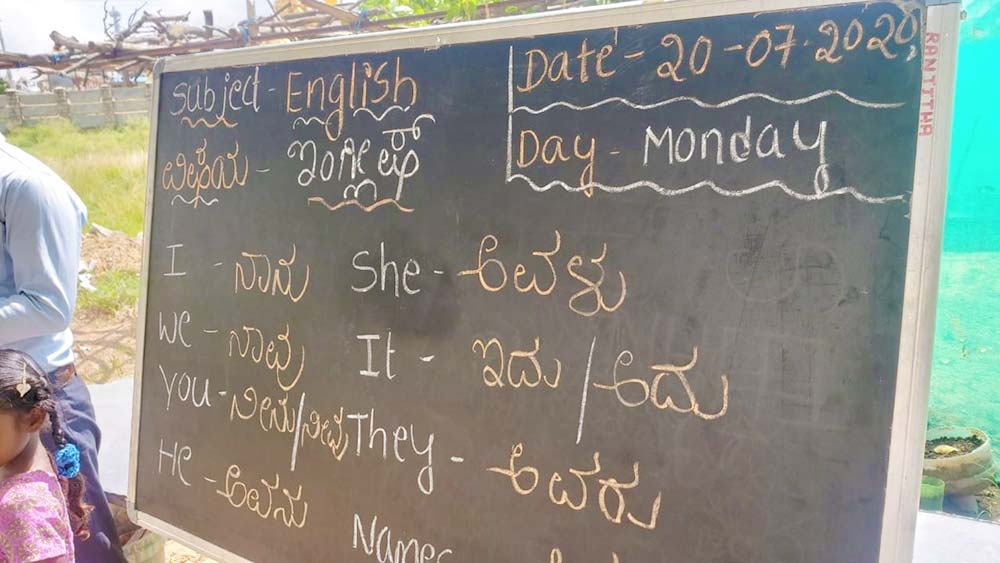 Subject - English
ವಿಷಯ - ಇಂಗ್ಲೀಷ್
Date - 20-07-2020,
Day - Monday
I - ನಾನು
We - ನಾವು
You - ನೀನು/ನೀವು
He - ಅವನು
She - ಅವಳು
It - ಇದು/ಅದು
They - ಅವರು
Names